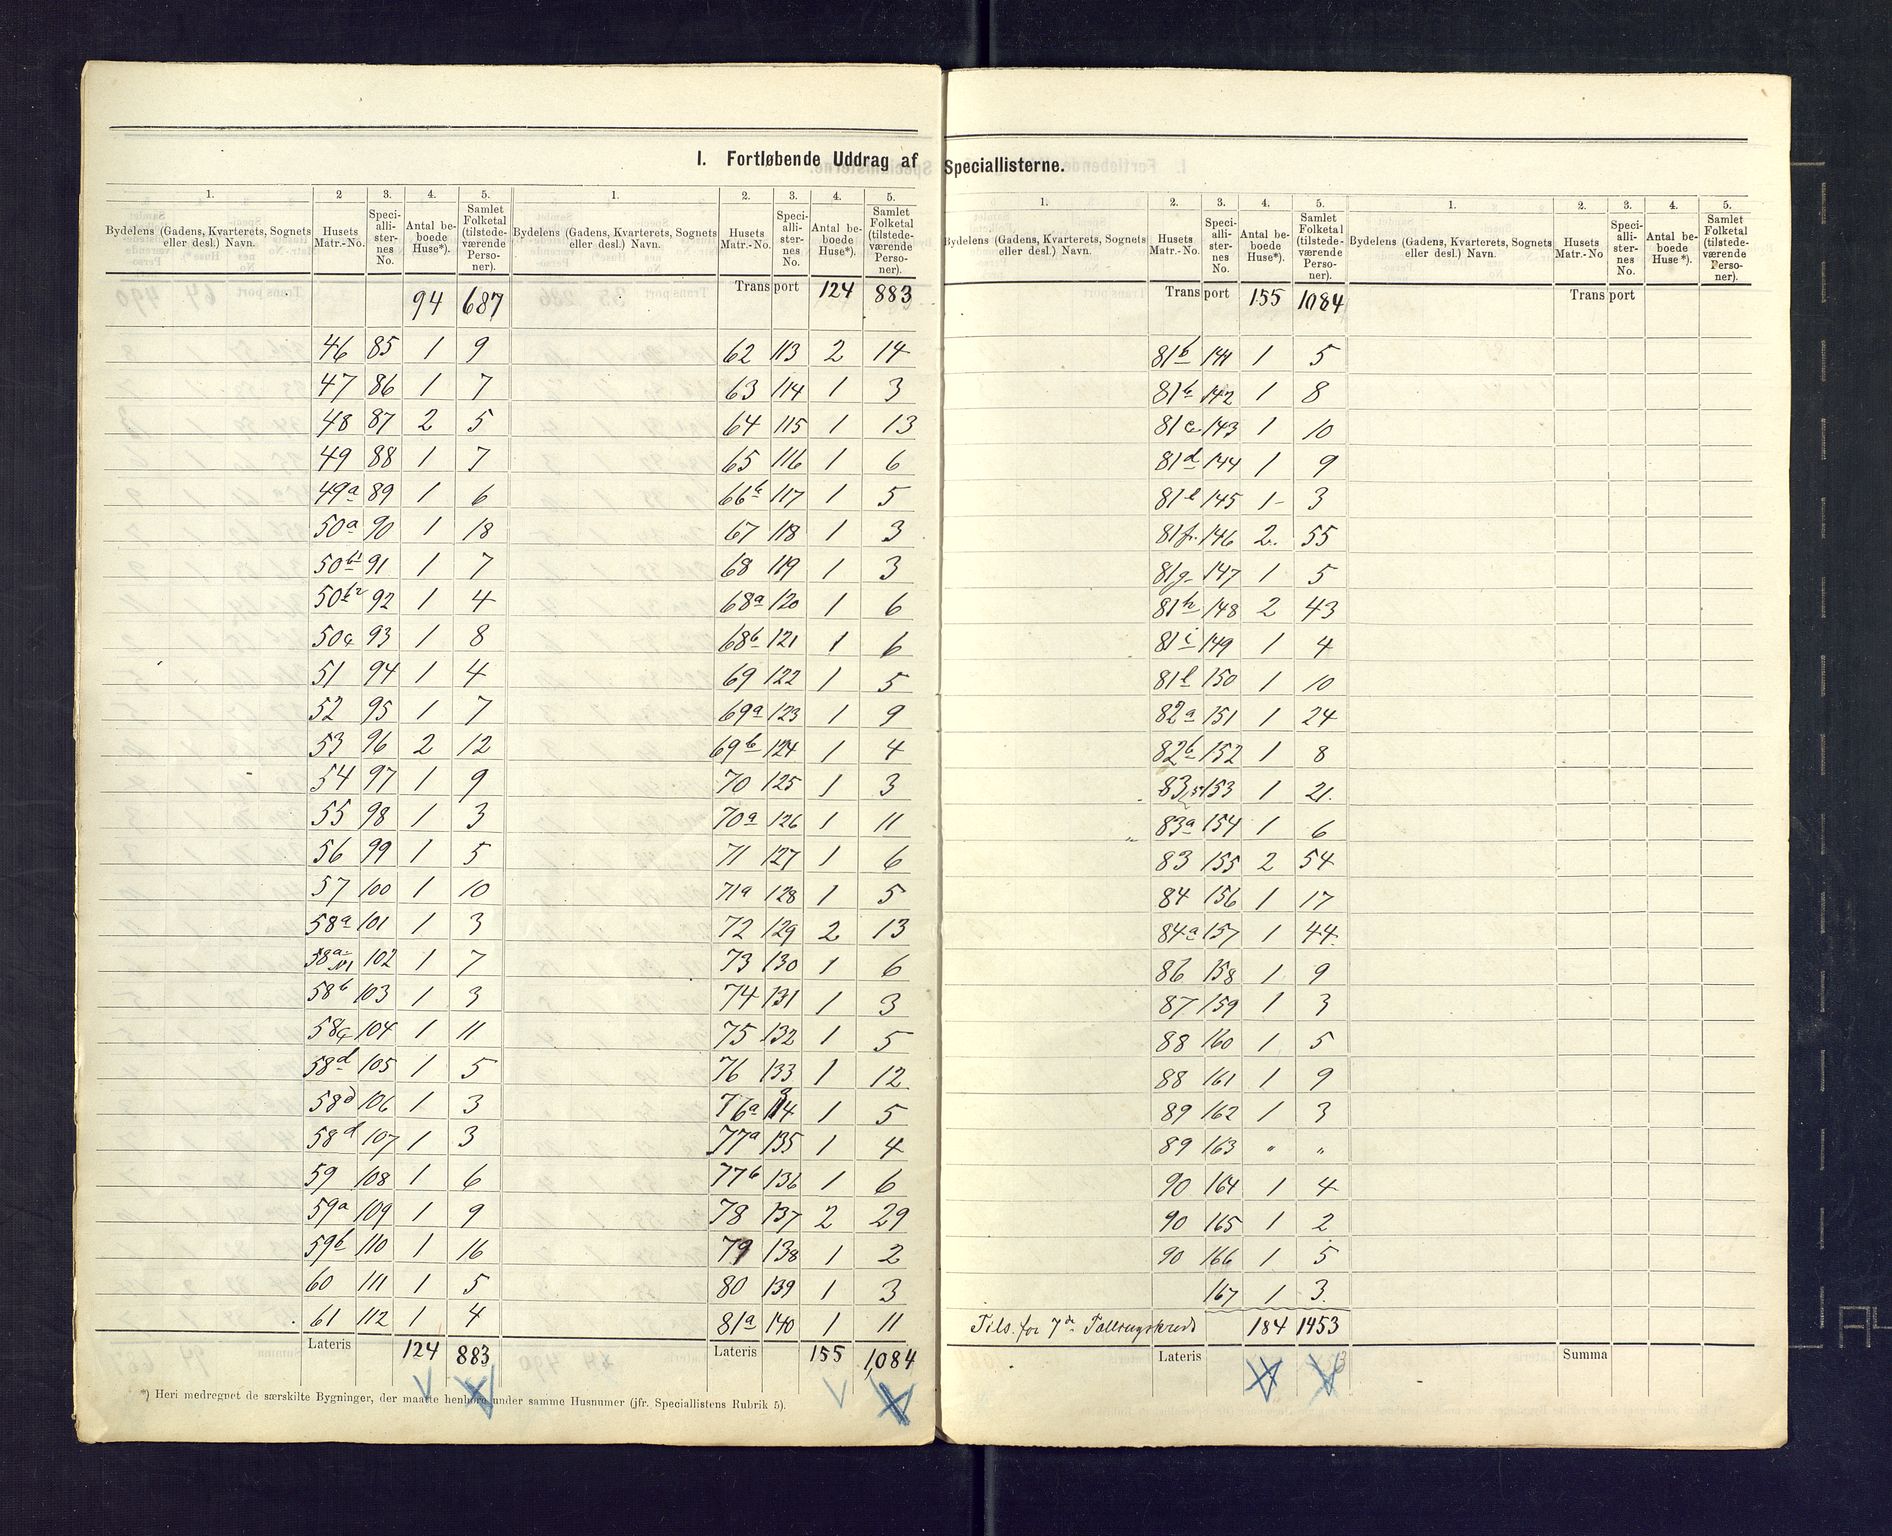 I. Fortløbende Uddrag af Speciallisterne.
1. 2 3. 4. 5. 1. 2. 3. 4. 5.
Bydelens (Gadens, Kvarterets, Sognets eller desl.) Navn. Husets Matr.-No. Speci-alli-ster-nes No. Antal be-boede Huse*). Samlet Folketal (tilstede-værende Perso-ner). Bydelens (Gadens, Kvarterets, Sognets eller desl.) Navn. Husets Matr.-No. Speci-alli-ster-nes No. Antal be-boede Huse*). Samlet Folketal (tilstede-værende Perso-ner).
94 687
46 85 1 9
47 86 1 7
48 87 2 5
49 88 1 7
49a 89 1 6
50a 90 1 18
50b1 91 1 7
50b2 92 1 4
50c 93 1 8
51 94 1 4
52 95 1 7
53 96 2 12
54 97 1 9
55 98 1 3
56 99 1 5
57 100 1 10
58a 101 1 3
58a N1 102 1 7
58b 103 1 3
58c 104 1 11
58d 105 1 5
58d 106 1 3
58d 107 1 3
59 108 1 6
59a 109 1 9
59b 110 1 16
60 111 1 5
61 112 1 4
Lateris 124 883
Transport 124 883
62 113 2 14
63 114 1 3
64 115 1 13
65 116 1 6
66b 117 1 5
67 118 1 3
68 119 1 3
68a 120 1 6
68b 121 1 6
69 122 1 5
69a 123 1 9
69b 124 1 4
70 125 1 3
70a 126 1 11
71 127 1 6
71a 128 1 5
72 129 2 13
73 130 1 6
74 131 1 3
75 132 1 5
76 133 1 12
76a 134 1 5
77a 135 1 4
77b 136 1 6
78 137 2 29
79 138 1 2
80 139 1 3
81a 140 1 11
Lateris 155 1,084
*) Heri medregnet de særskilte Bygninger, der maatte henhøre under samme Husnumer (jfr. Speciallistens Rubrik 5).
1. 2. 3. 4. 5. 1. 2. 3. 4. 5.
Bydelens (Gadens, Kvarterets, Sognets eller desl.) Navn. Husets Matr.-No. Speci-alli-ster-nes No. Antal be-boede Huse*). Samlet Folketal (tilstede-værende Perso-ner). Bydelens (Gadens, Kvarterets, Sognets eller desl.) Navn. Husets Matr.-No Speci-alli-ster-nes No. Antal be-boede Huse*). Samlet Folketal (tilstede-værende Perso-ner).
Transport 155 1084
81b 141 1 5
81b 142 1 8
81c 143 1 10
81d 144 1 9
81e 145 1 3
81f 146 2 55
81g 147 1 5
81h 148 2 43
81i 149 1 4
81l 150 1 10
82a 151 1 24
82b 152 1 8
83 153 1 21
83a 154 1 6
83 155 2 54
84 156 1 17
84a 157 1 44
86 158 1 9
87 159 1 3
88 160 1 5
88 161 1 9
89 162 1 3
89 163 " "
90 164 1 4
90 165 1 2
90 166 1 5
167 1 3
Tils. for 7de Tællingskreds 184 1453
Lateris
Transport
Summa